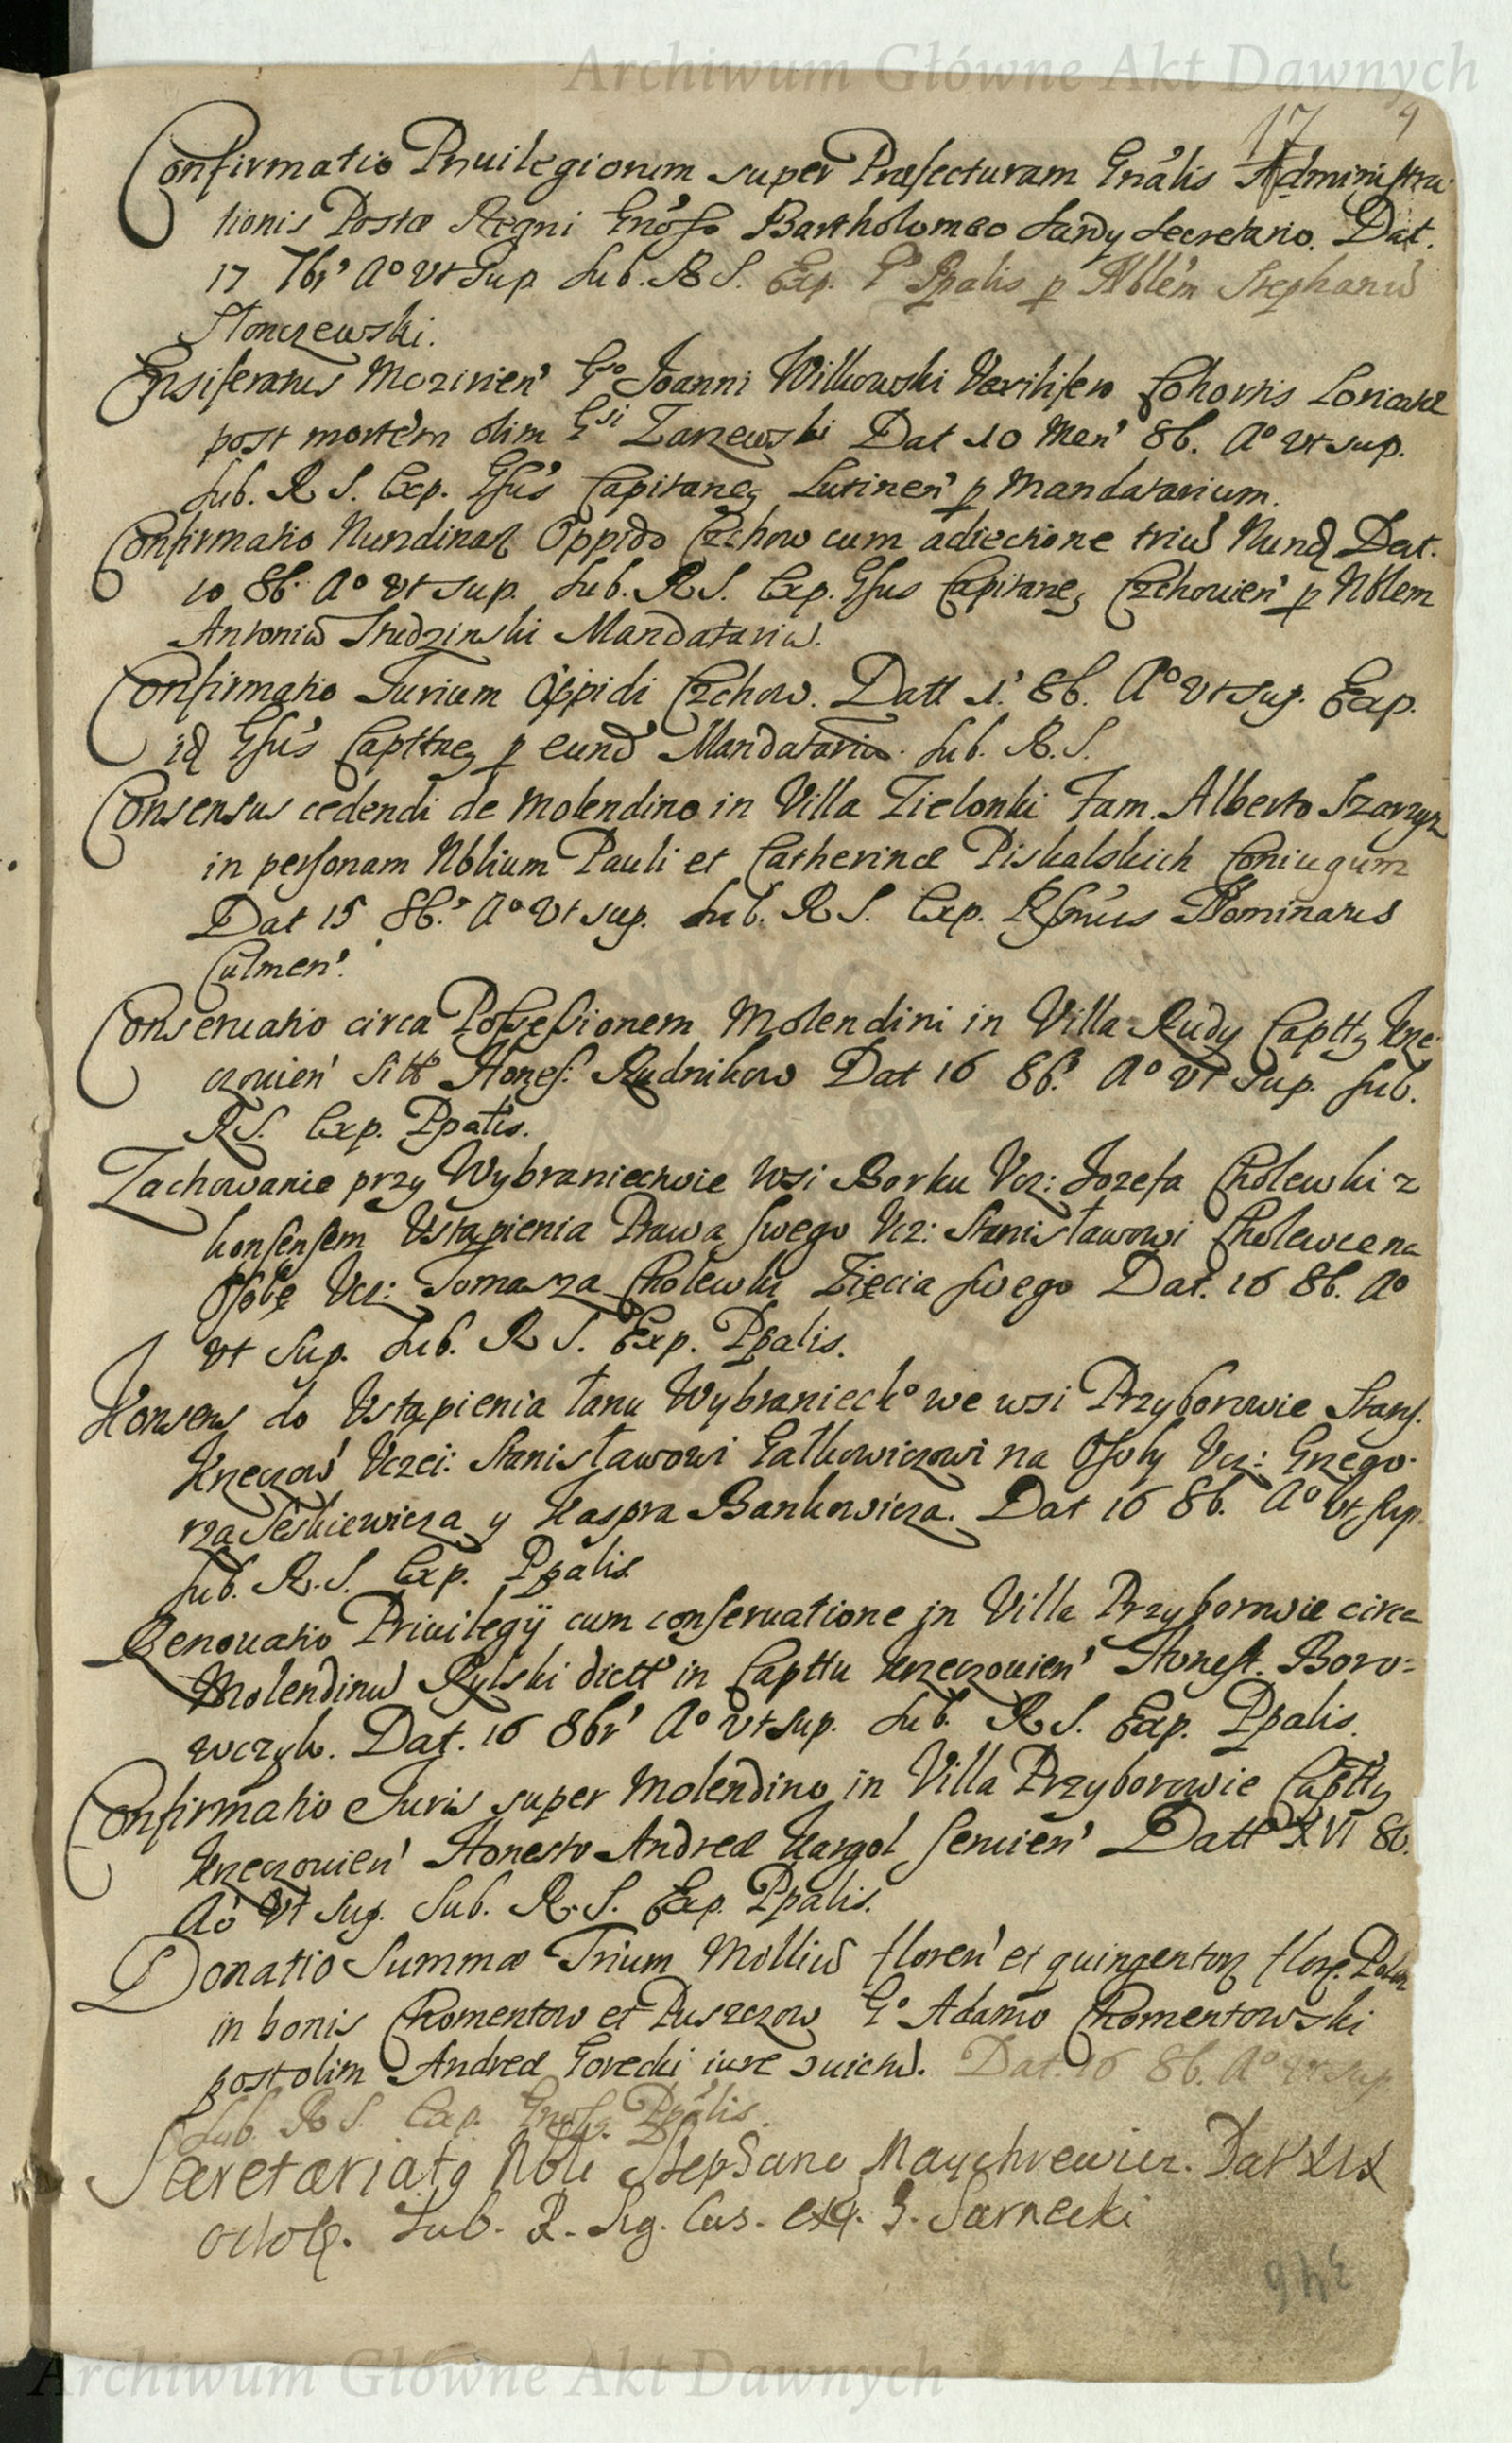 Archiwum Główne Akt Dawnych
17 9
Confirmatio Priuilegiorum super Præfecturam Gnãlis Administra-
tionis Postæ Regni Gnoso Bartholomeo Sardy Secretario. Dat.
17 7br' A° vt sup. Sub. R S. Exp. G' Ppalis p Nblem Stephanũ
Stonczewski.
Ensiferatus Mozirien' G° Joanni Wilkowski Vexilifero Cohortis Loricatæ
post mortem olim Gsi Zarzewski Dat 10 Men' 8b. A° vt sup.
Sub. R S. Exp. Gsus Capitaneq Lutinen' p Mandatarium.
Confirmatio Nundinaꝝ Oppido Czchow cum adiectione triũ Nund Dat.
10 8b. A° vt sup. Sub. R S. Exp. Gsus Capitaneq Czchouien' p Nblem
Antoniũ Trudzinski Mandatariũ.
Confirmatio Jurium Oppidi Czchow. Datt 1.' 8b. A° vt sup. Exp.
id Gsus Capttneq p eund Mandatariũ. Sub. R. S.
Consensus cedendi de molendino in Villa Zielonki Fam. Alberto Szarzyn
in personam Nblium Pauli et Catherinæ Piskalskich Coniugum
Dat 15 8b.' A° vt sup. Sub. R S. Exp. Rsmus Nominatus
Culmen'.
Conseruatio circa Possessionem Molendini in Villa Rudy Captty Krze-
czouien' sitt Hones: Rudnikow Dat 16 8b. A° vt sup. Sub.
R S. Exp. Ppalis.
Zachowanie przy Wybraniectwie Wsi Borku Vcz: Jozefa Cholewki z
konsensem Vstąpienia Prawa swego Vcz: Stanisławowi Cholewce na
Osobę Vcz: Tomasza Cholewki Zięcia swego Dat. 16 8b. A°
vt sup. Sub. R S. Exp. Ppalis.
Konsens do Vstąpienia łanu Wybranieck° we wsi Przyborowie Stars.
Krzeczow' Vczci: Stanisławowi Gałkowiczowi na Osoby Vcz: Grzego-
rza Leśkiewicza y Kaspra Bankowicza. Dat 16 8b. A° vt sup.
Sub. R. S. Exp. Ppalis.
Renouatio Priuilegij cum conseruatione in Villa Przyborowie circa
Molendinũ Rylski dictt' in Capttu Krzeczouien' Honest. Boro=
wczyk. Dat. 16 8br' A° vt sup. Sub. R S. Exp. Ppalis.
Confirmatio Juris super Molendino in Villa Przyborowie Captty
Krzeczouien' Honesto Andreæ Kargol seruien' Datt XVI 8b.
A° vt sup. Sub. R. S. Exp. Ppalis.
Donatio Summæ Trium Milliũ floren' et quingentoꝝ flore. Polon
in bonis Chomentow et Puszczow G° Adamo Chomentowski
post olim Andreæ Gorecki iure Dat. 16 8b. A° vt sup.
Sub. R S. Exp. Ppalis.
Secretariatq Nbli Stephano Dat XIX
octob. Sub. R. Sig. Cus. exp. G. Sarnecki
346
Archiwum Główne Akt Dawnych